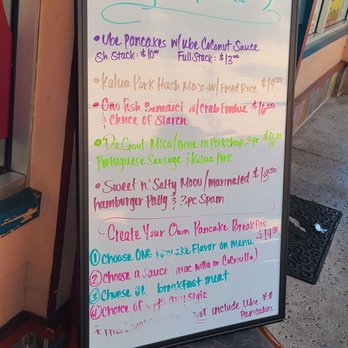 • Ube Pancakes w/ Ube Coconut Sauce
Sh. Stack: $10⁰⁰ Full Stack: $13⁰⁰
• Kalua Pork Hash Moco w/ Fried Rice $14
• Ono Fish Benedict w/ Crab Fondue $16
& Choice of Starch
• Da Gout Moco / Bone in Porkchop, 2pc $16
Portuguese Sausage & Kalua Pork
• Sweet n' Salty Moco / marinated $13
hamburger Patty & 2pc Spam
Create Your Own Pancake Breakfast
① Choose ONE Flavor on menu $14
② choose a Sauce
③ Choose breakfast meat
④ Choice of Style
not include Ube **
Pancakes